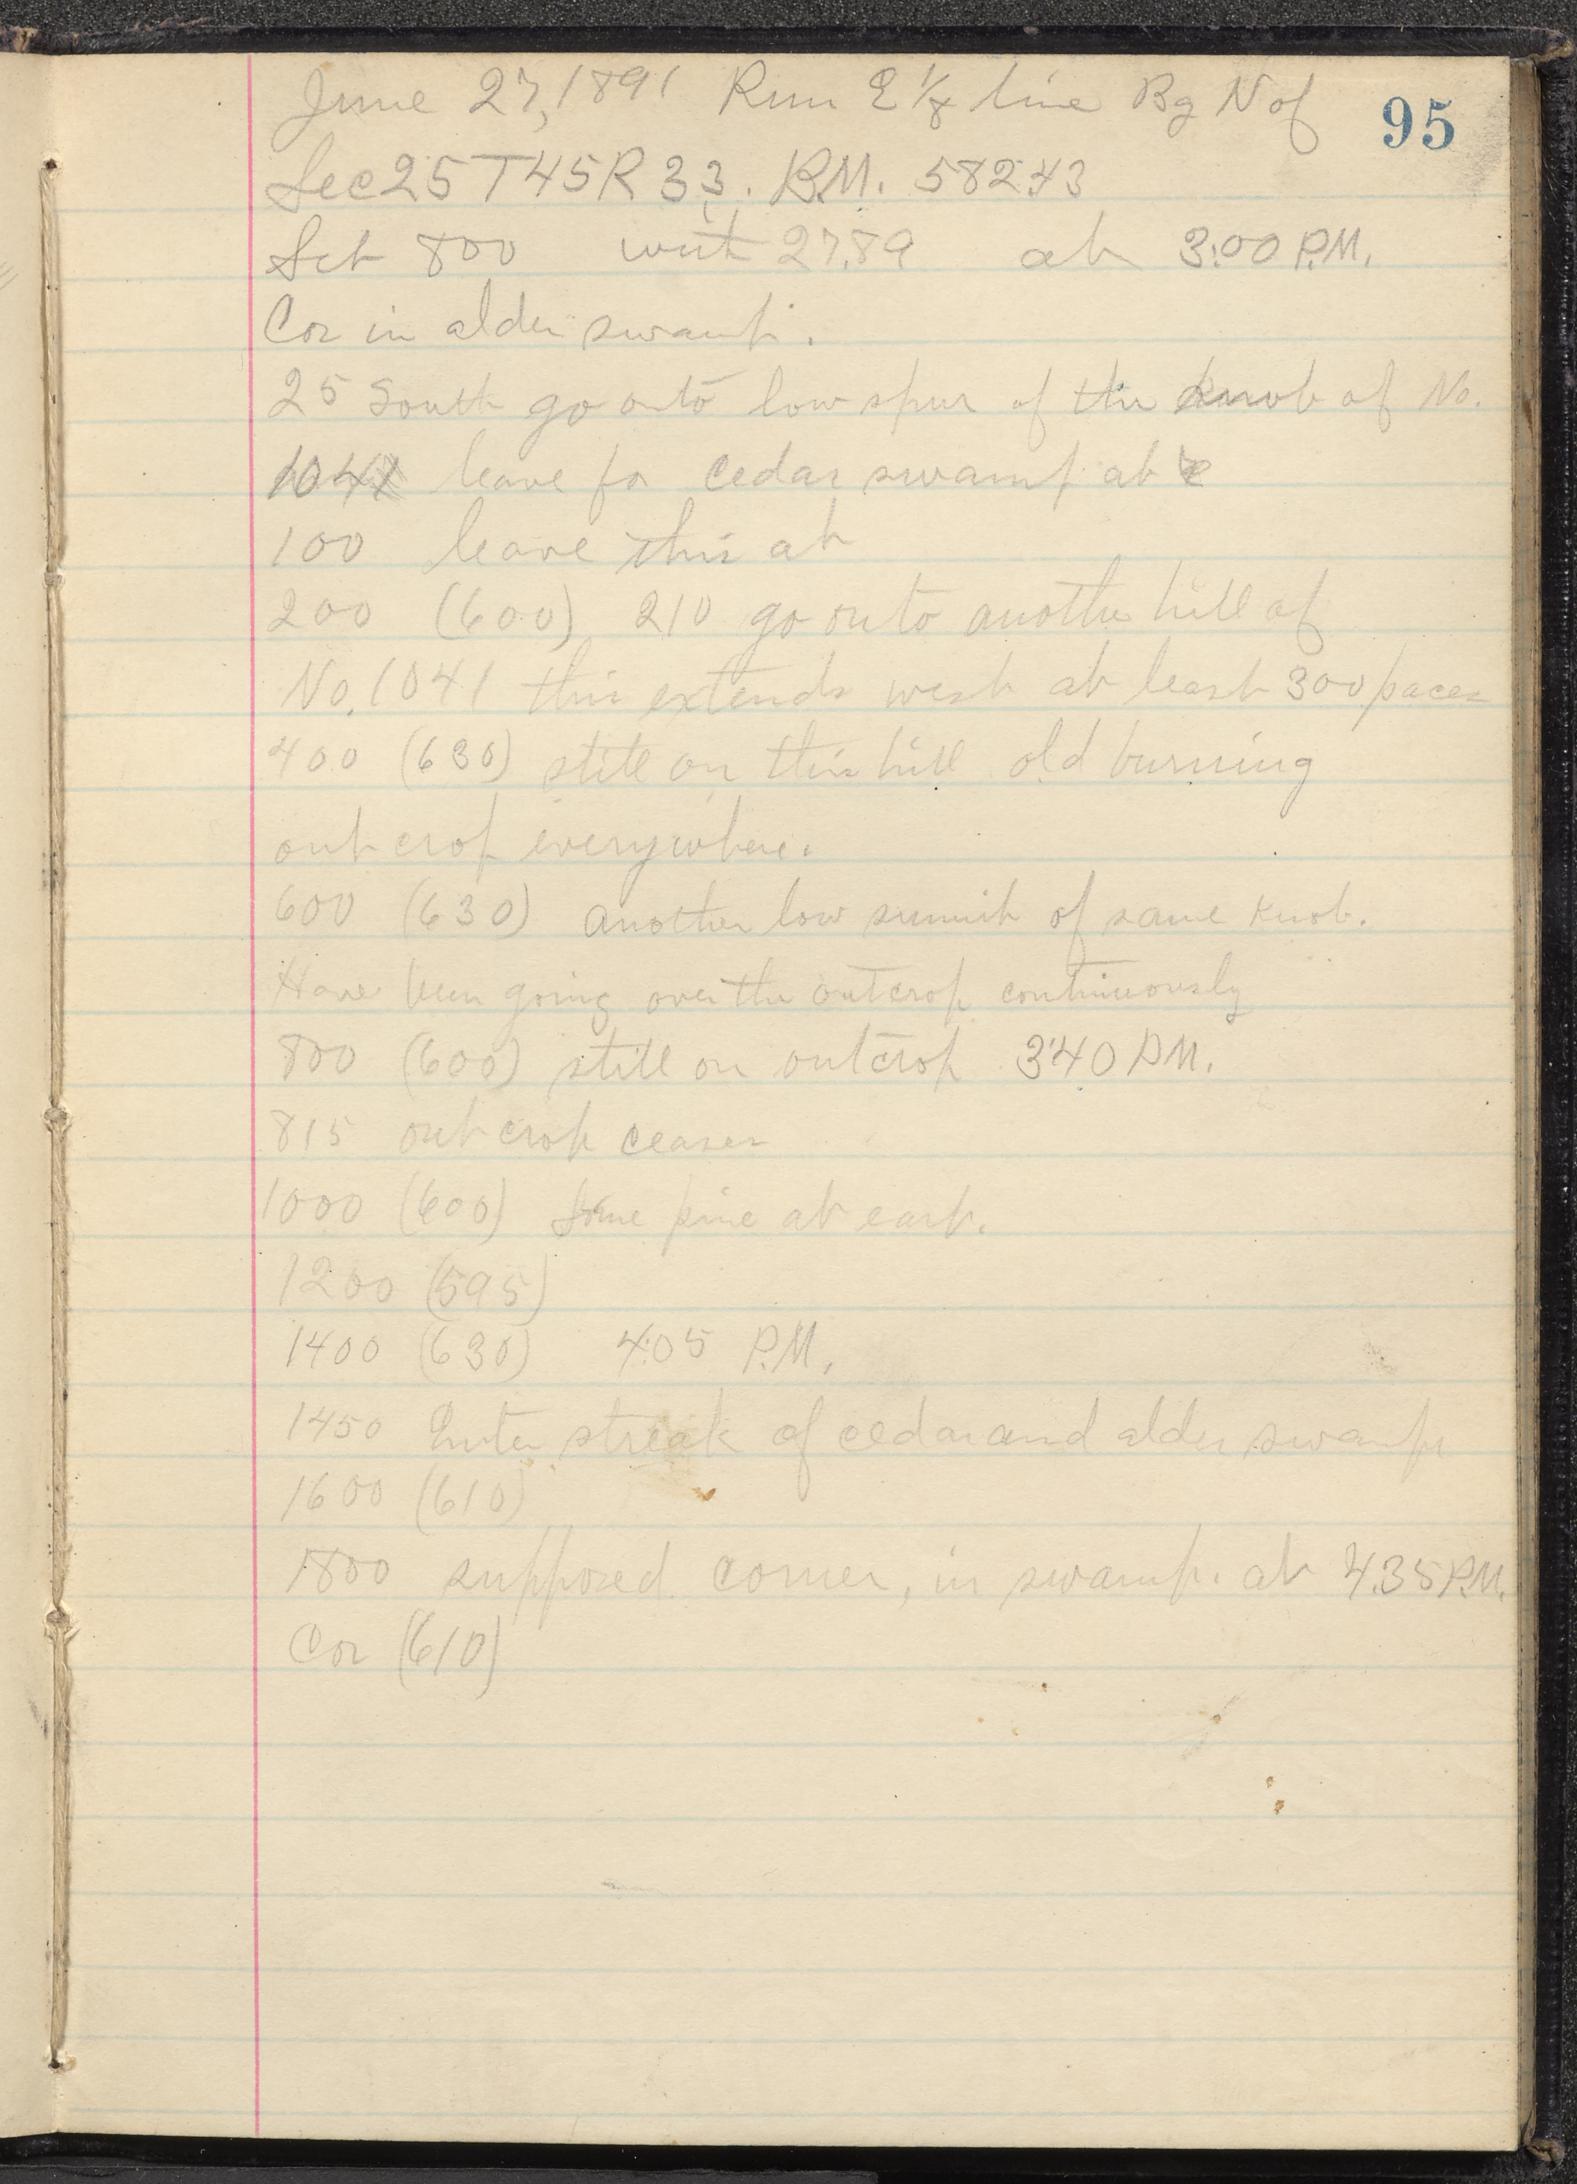 95
June 27, 1891 Run E 1/8 line Bg N of
Sec 25 T45 R 33. B.M. 58243
Set 800 with 27.89 at 3:00 P.M.
Cor in alder swamp.
25 South go onto low spur of the knob of No.
1041 leave for cedar swamp at
100 leave this at
200 (600) 210 go onto another hill of
No. 1041 this extends west at least 300 paces
400 (630) still on this hill old burning
outcrop everywhere.
600 (630) another low summit of same knob.
Have been going over the outcrop continuously
800 (600) still on outcrop 3:40 P.M.
815 outcrop ceases
1000 (600) Some pine at east.
1200 (595)
1400 (630) 4:05 P.M.
1450 Enter streak of cedar and alder swamp
1600 (610)
1800 supposed corner, in swamp. at 4.35 P.M.
Cor (610)